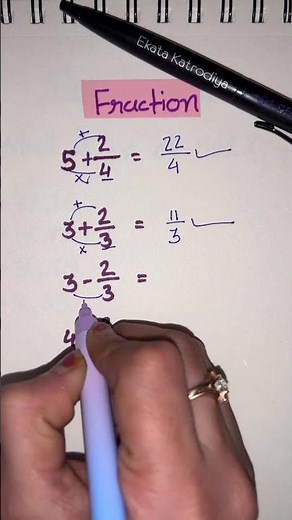 Ekata Katrodiya
Fraction
5 + 2/4 = 22/4
3 + 2/3 = 11/3
3 - 2/3 =
4